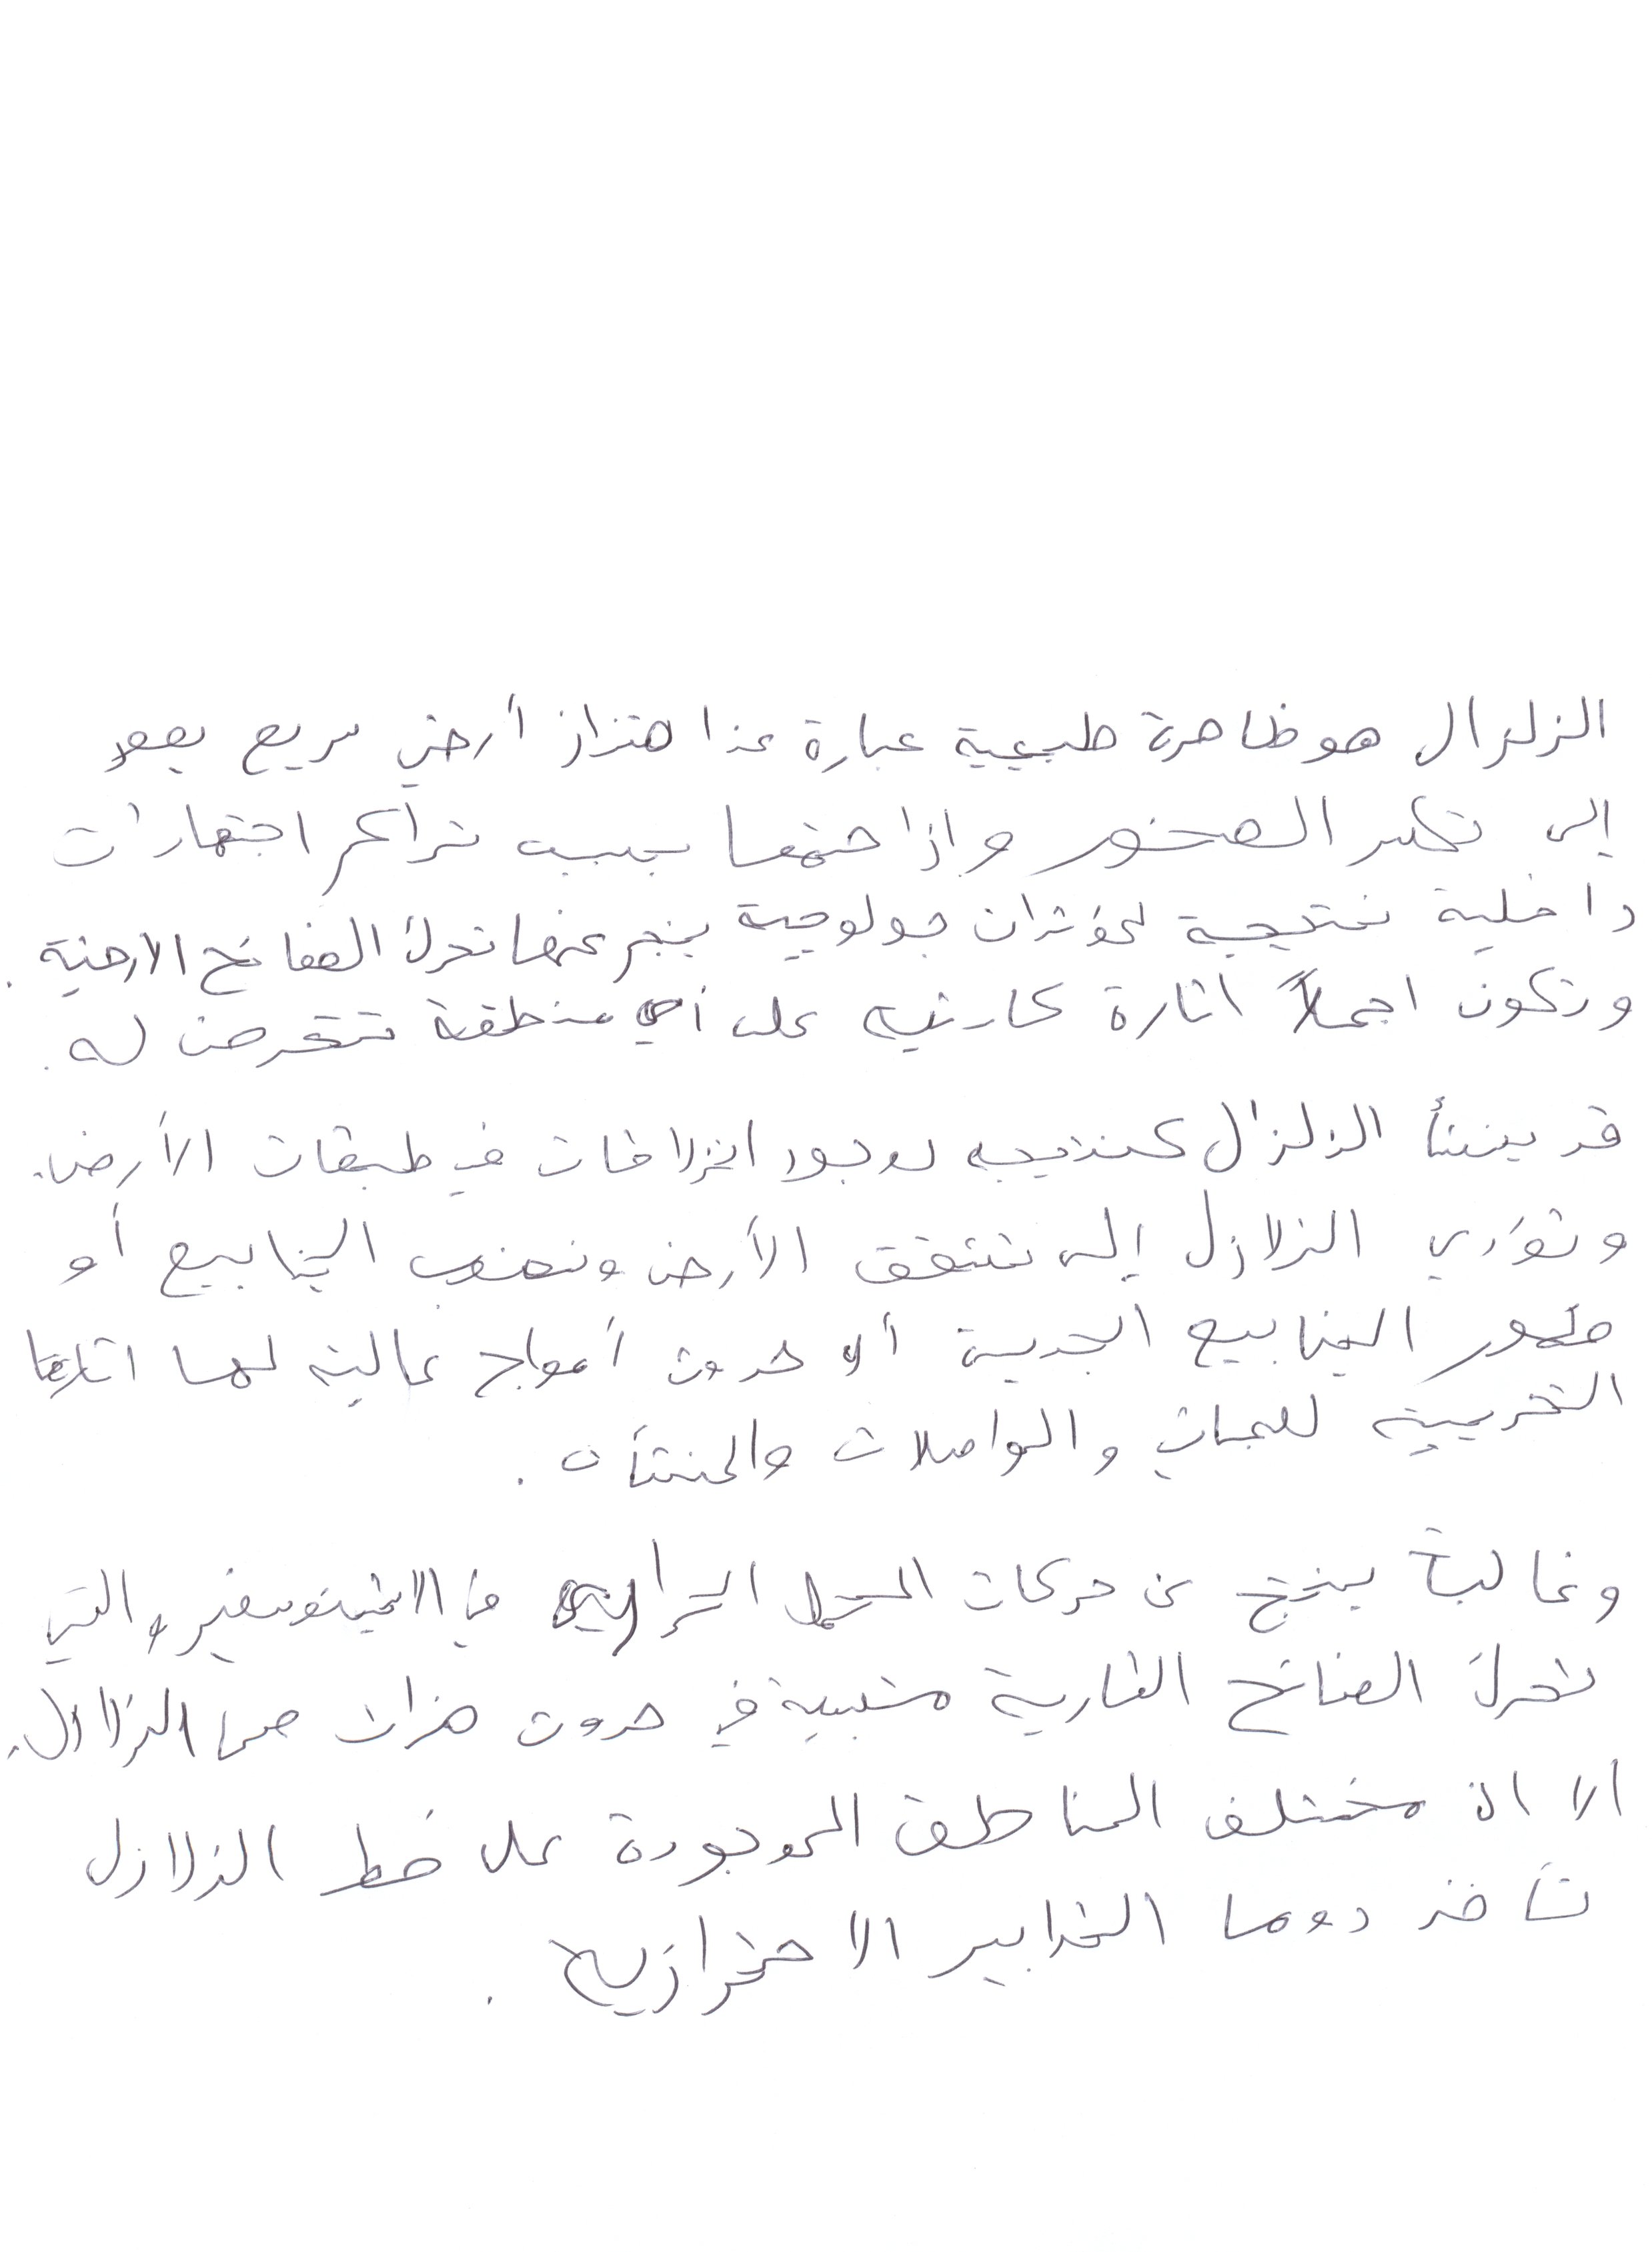 الزلزال هو ظاهرة طبيعية عبارة عن اهتزاز أرضي سريع يعود
إلى تكسر الصخور وإزاحتها بسبب تراكم اجتهادات
داخلية نتيجة لمؤثرات جيولوجية ينجم عنها تحرك الصفائح الارضية .
وتكون اجمالاً اثارة كارثيه على أي منطقة تتعرض له .
قد ينشأ الزلزال كنتيجه لوجود انزلاقات في طبقات الأرض.
وتؤدي الزلازل إلى تشقق الأرض ونضوب الينابيع أو
ظهور الينابيع الجديدة أو حدوث أمواج عالية لها اثارها
التخريبية للمباني والمواصلات والمنشأت .
وغالباً ينتج عن حركات الحمل الحراري في الاثينوسفير والتي
تحرك الصفائح القارية متسببة في حدوث هزات هي الزلازل.
الا ان مختلف المناطق الموجودة على خط الزلازل
تأخذ دوما التدابير الاحترازيه .